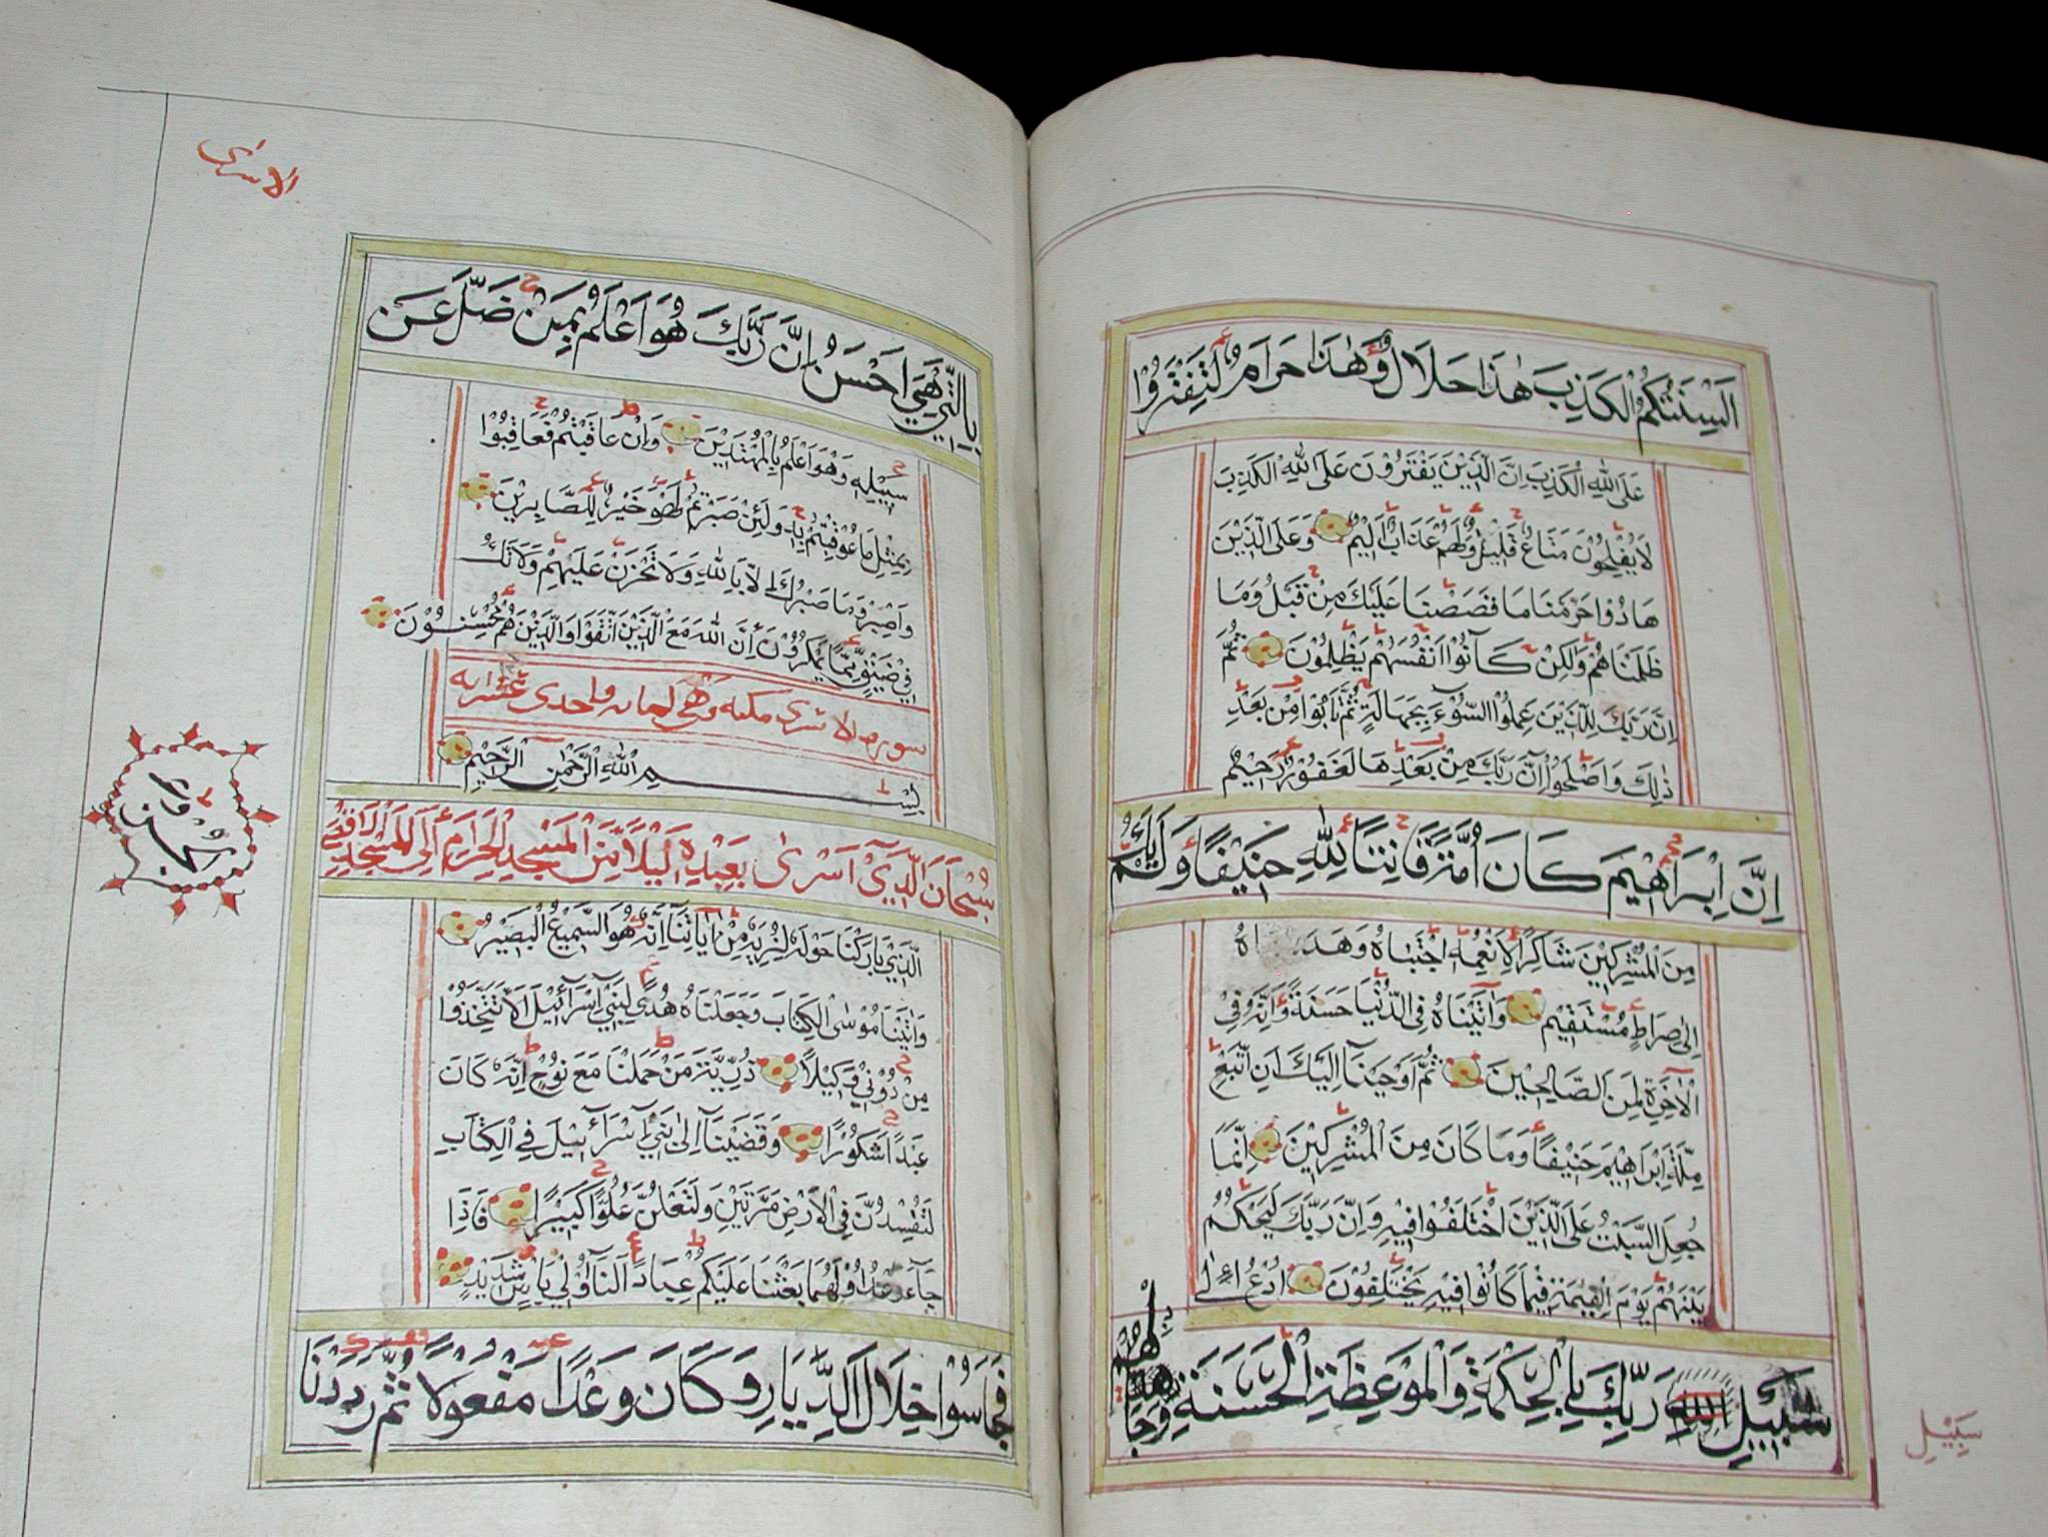 اَلْسِنَتُكُمُ الْكَذِبَ هٰذَا حَلَالٌ وَّهٰذَا حَرَامٌ لِّتَفْتَرُوْا
عَلَى اللّٰهِ الْكَذِبَ اِنَّ الَّذِيْنَ يَفْتَرُوْنَ عَلَى اللّٰهِ الْكَذِبَ
لَا يُفْلِحُوْنَ مَتَاعٌ قَلِيْلٌ وَّلَهُمْ عَذَابٌ اَلِيْمٌ وَعَلَى الَّذِيْنَ
هَادُوْا حَرَّمْنَا مَا قَصَصْنَا عَلَيْكَ مِنْ قَبْلُ وَمَا
ظَلَمْنَاهُمْ وَلٰكِنْ كَانُوْا اَنْفُسَهُمْ يَظْلِمُوْنَ ثُمَّ
اِنَّ رَبَّكَ لِلَّذِيْنَ عَمِلُوا السُّوْٓءَ بِجَهَالَةٍ ثُمَّ تَابُوْا مِنْ بَعْدِ
ذٰلِكَ وَاَصْلَحُوْا اِنَّ رَبَّكَ مِنْ بَعْدِهَا لَغَفُوْرٌ رَّحِيْمٌ
اِنَّ اِبْرَاهِيْمَ كَانَ اُمَّةً قَانِتًا لِّلّٰهِ حَنِيْفًا وَّلَمْ يَكُ
مِنَ الْمُشْرِكِيْنَ شَاكِرًا لِاَنْعُمِهِ اجْتَبٰاهُ وَهَدَاهُ
اِلٰى صِرَاطٍ مُسْتَقِيْمٍ وَاٰتَيْنَاهُ فِي الدُّنْيَا حَسَنَةً وَّاِنَّهُ فِيْ
الْاٰخِرَةِ لَمِنَ الصَّالِحِيْنَ ثُمَّ اَوْحَيْنَآ اِلَيْكَ اَنِ اتَّبِعْ
مِلَّةَ اِبْرَاهِيْمَ حَنِيْفًا وَّمَا كَانَ مِنَ الْمُشْرِكِيْنَ اِنَّمَا
جُعِلَ السَّبْتُ عَلَى الَّذِيْنَ اخْتَلَفُوْا فِيْهِ وَاِنَّ رَبَّكَ لَيَحْكُمُ
بَيْنَهُمْ يَوْمَ الْقِيٰمَةِ فِيْمَا كَانُوْا فِيْهِ يَخْتَلِفُوْنَ اُدْعُ اِلٰى
سَبِيْلِ رَبِّكَ بِالْحِكْمَةِ وَالْمَوْعِظَةِ الْحَسَنَةِ وَجَادِلْهُمْ
سَبِيْلِ
الاسرى
بِالَّتِيْ هِيَ اَحْسَنُ اِنَّ رَبَّكَ هُوَ اَعْلَمُ بِمَنْ ضَلَّ عَنْ
سَبِيْلِهِ وَهُوَ اَعْلَمُ بِالْمُهْتَدِيْنَ وَاِنْ عَاقَبْتُمْ فَعَاقِبُوْا
بِمِثْلِ مَا عُوْقِبْتُمْ بِهِ وَلَئِنْ صَبَرْتُمْ لَهُوَ خَيْرٌ لِّلصَّابِرِيْنَ
وَاصْبِرْ وَمَا صَبْرُكَ اِلَّا بِاللّٰهِ وَلَا تَحْزَنْ عَلَيْهِمْ وَلَا تَكُ
فِيْ ضَيْقٍ مِّمَّا يَمْكُرُوْنَ اِنَّ اللّٰهَ مَعَ الَّذِيْنَ اتَّقَوْا وَالَّذِيْنَ هُمْ مُحْسِنُوْنَ
سورة الاسرى مكية وهي مائة واحدى عشر اية
بِسْمِ اللّٰهِ الرَّحْمٰنِ الرَّحِيْمِ
سُبْحَانَ الَّذِيْٓ اَسْرٰى بِعَبْدِهِ لَيْلًا مِّنَ الْمَسْجِدِ الْحَرَامِ اِلَى الْمَسْجِدِ الْاَقْصَى
الَّذِيْ بَارَكْنَا حَوْلَهُ لِنُرِيَهُ مِنْ اٰيَاتِنَا اِنَّهُ هُوَ السَّمِيْعُ الْبَصِيْرُ
وَاٰتَيْنَا مُوْسٰى الْكِتَابَ وَجَعَلْنَاهُ هُدًى لِّبَنِيْٓ اِسْرَآئِيْلَ اَلَّا تَتَّخِذُوْا
مِنْ دُوْنِيْ وَكِيْلًا ذُرِّيَّةَ مَنْ حَمَلْنَا مَعَ نُوْحٍ اِنَّهُ كَانَ
عَبْدًا شَكُوْرًا وَقَضَيْنَآ اِلٰى بَنِيْٓ اِسْرَآئِيْلَ فِي الْكِتَابِ
لَتُفْسِدُنَّ فِي الْاَرْضِ مَرَّتَيْنِ وَلَتَعْلُنَّ عُلُوًّا كَبِيْرًا فَاِذَا
جَآءَ وَعْدُ اُوْلٰهُمَا بَعَثْنَا عَلَيْكُمْ عِبَادًا لَّنَآ اُولِيْ بَاْسٍ شَدِيْدٍ
فَجَاسُوْا خِلَالَ الدِّيَارِ وَكَانَ وَعْدًا مَفْعُوْلًا ثُمَّ رَدَدْنَا